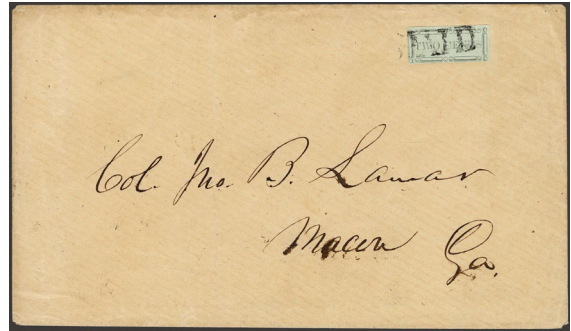 PAID
Col. Jno. B. Lamar
Macon Ga.